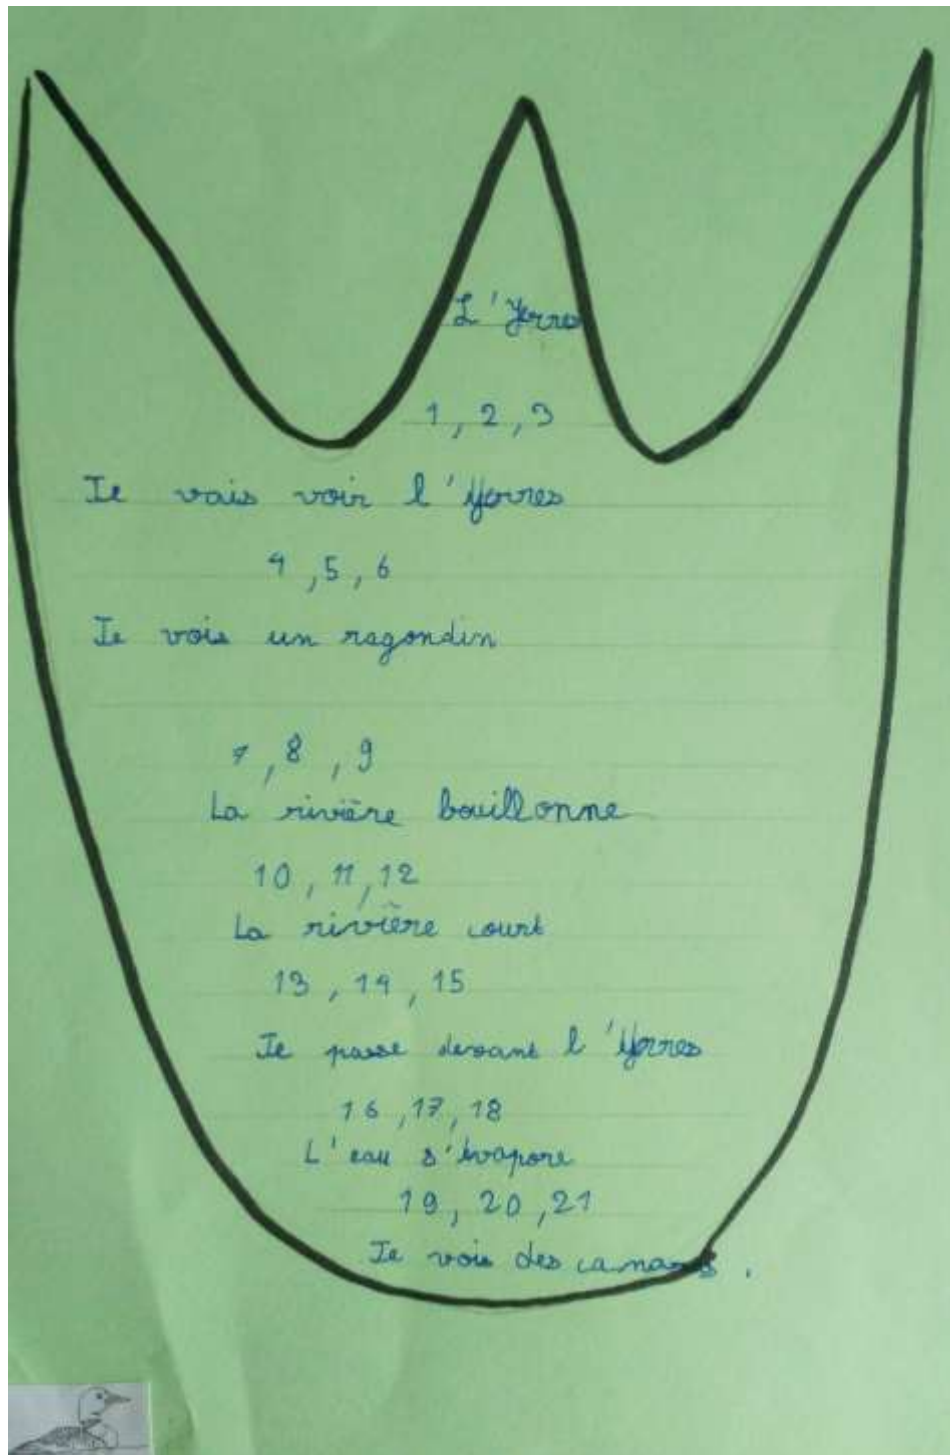 L'Yerres
1, 2, 3
Je vais voir l'Yerres
4, 5, 6
Je vois un ragondin
7, 8, 9
La rivière bouillonne
10, 11, 12
La rivière court
13, 14, 15
Je passe devant l'Yerres
16, 17, 18
L'eau s'évapore
19, 20, 21
Je vois des canards.